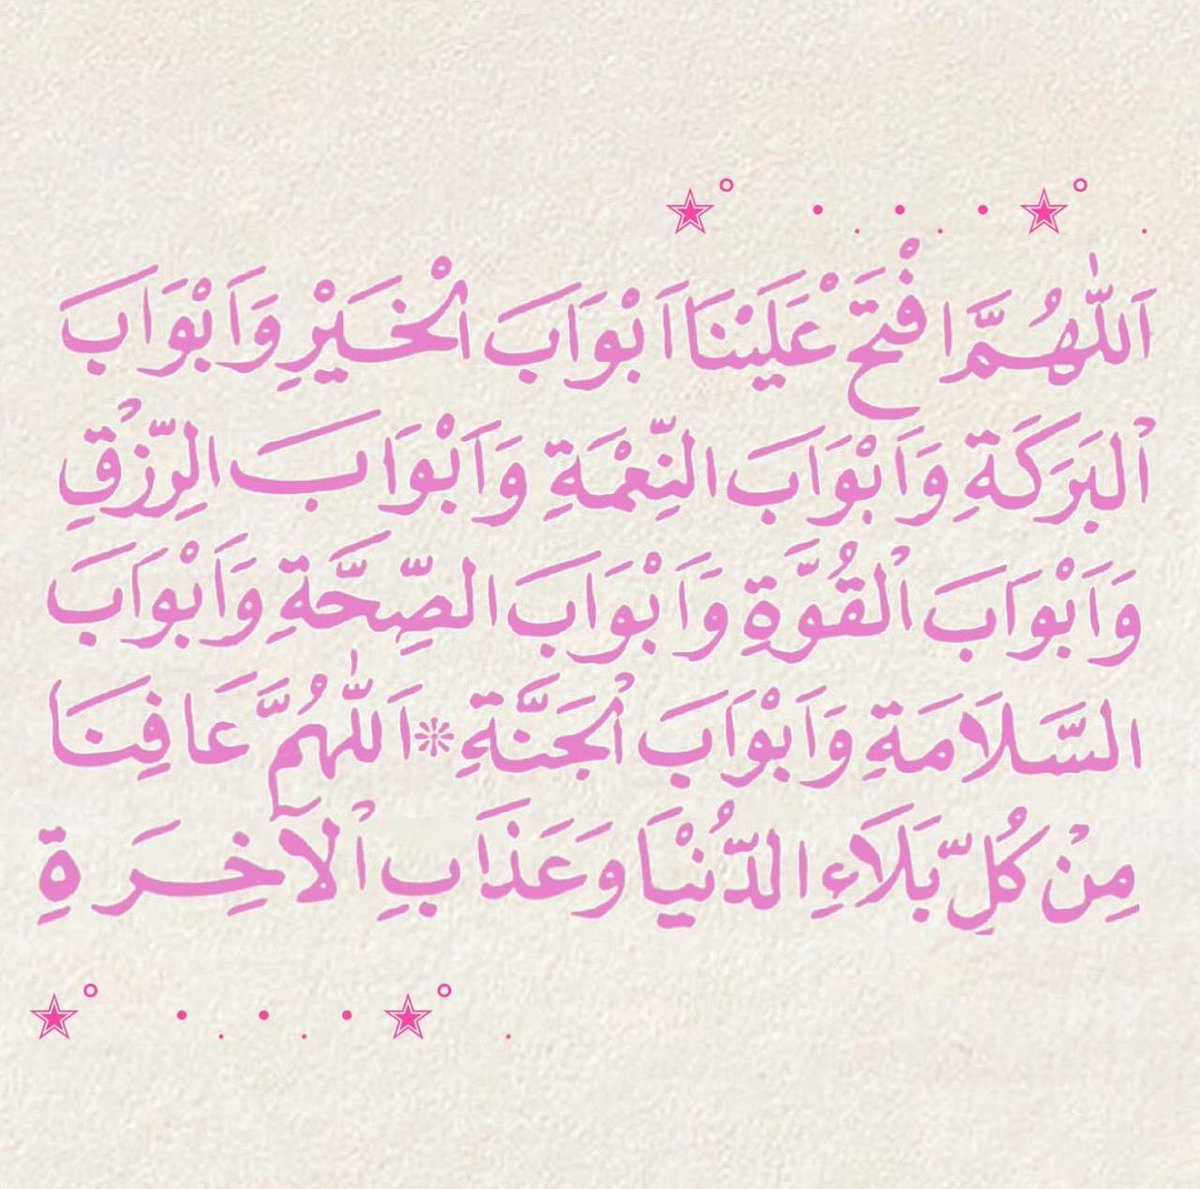 اَللّٰهُمَّ افْتَحْ عَلَيْنَا اَبْوَابَ الْخَيْرِ وَاَبْوَابَ
الْبَرَكَةِ وَاَبْوَابَ النِّعْمَةِ وَاَبْوَابَ الرِّزْقِ
وَاَبْوَابَ الْقُوَّةِ وَاَبْوَابَ الصِّحَّةِ وَاَبْوَابَ
السَّلَامَةِ وَاَبْوَابَ الْجَنَّةِ ❊ اَللّٰهُمَّ عَافِنَا
مِنْ كُلِّ بَلَاءِ الدُّنْيَا وَعَذَابِ الْآخِرَةِ